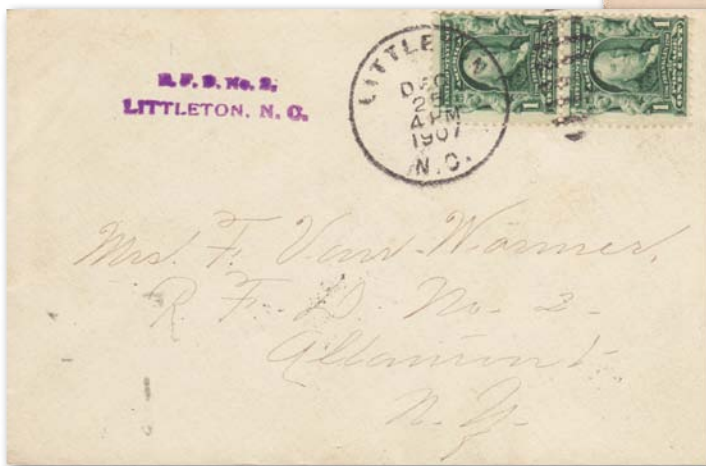 R. F. D. No. 2.
LITTLETON, N. C.
LITTLE N
DEC
25
4 PM
1907
N.C.
1 1
1 1
Mrs. F. Van Wormer,
R. F. D. No. 2-
Altamont-
N. Y.